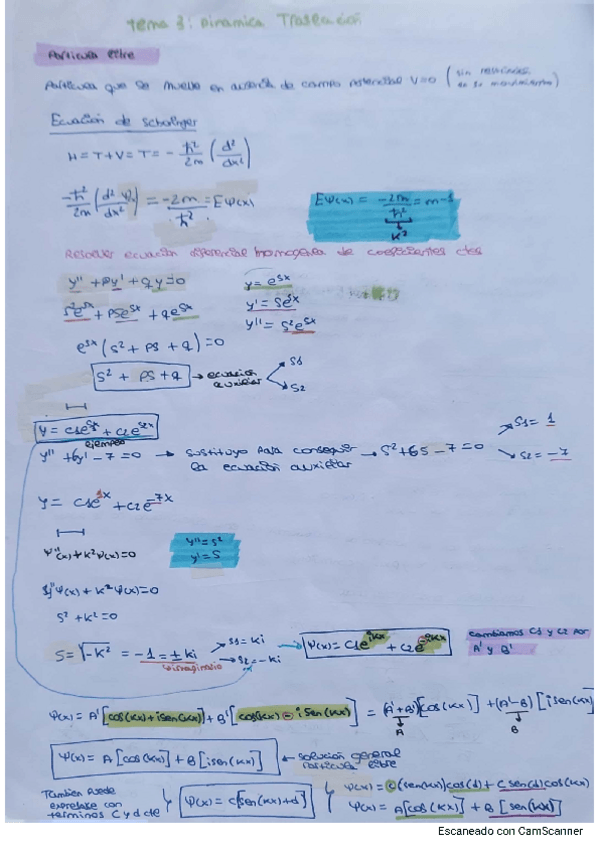 Tema 3: Dinamica Traslación
Particula libre
Particula que se mueve en ausencia de campo potencial V=0 (sin restricciones de su movimiento)
Ecuación de
H = T+V = T = - ħ²/2m (d²/dx²)
-ħ²/2m (d²Ψ(x)/dx²) = -2m/ħ² = EΨ(x)
EΨ(x) = -2m/ħ² = m-s
K²
Resolver ecuación diferencial homogénea de coeficientes ctes
y'' + py' + qy = 0
y = e^sx
s²e^sx + pse^sx + qe^sx
y' = se^sx
y'' = s²e^sx
e^sx (s² + ps + q) = 0
s² + ps + q → ecuación auxiliar
s1
s2
y = c1e^s1x + c2e^s2x
ejemplo
y'' + 6y' - 7 = 0 → sustituyo para conseguir la ecuación auxiliar → s² + 6s - 7 = 0
s1 = 1
s2 = -7
y = c1e^1x + c2e^-7x
Ψ''(x) + K²Ψ(x) = 0
y'' = s²
y' = s
Ψ(x) + K²Ψ(x) = 0
s² + K² = 0
s = √-K² = -1 = ± Ki
s1 = Ki
s2 = -Ki
Ψ(x) = c1e^iKx + c2e^-iKx
cambiamos C1 y C2 por A' y B'
Ψ(x) = A' [cos(Kx) + i sen(Kx)] + B' [cos(Kx) - i sen(Kx)] = (A'+B') [cos(Kx)] + (A'-B) [i sen(Kx)]
A
B
Ψ(x) = A [cos(Kx)] + B [i sen(Kx)] ← solución general particula libre
También puede expresarse con terminos C y d cte
Ψ(x) = C [sen(Kx) + d]
Ψ(x) = C (sen(Kx) cos(d) + C sen(d) cos(Kx)
Ψ(x) = A [cos(Kx)] + B [sen(Kx)]
Escaneado con CamScanner